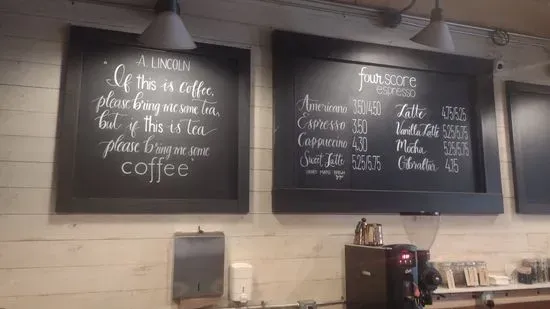 A. LINCOLN
If this is coffee,
please bring me some tea,
but if this is tea
please bring me some
coffee
fourscore
espresso
Americano 3.50/4.50
Espresso 3.50
Cappuccino 4.30
Sweet Latte 5.25/5.75
Latte 4.75/5.25
Vanilla Latte 5.25/5.75
Mocha 5.25/5.75
Gibraltar 4.75